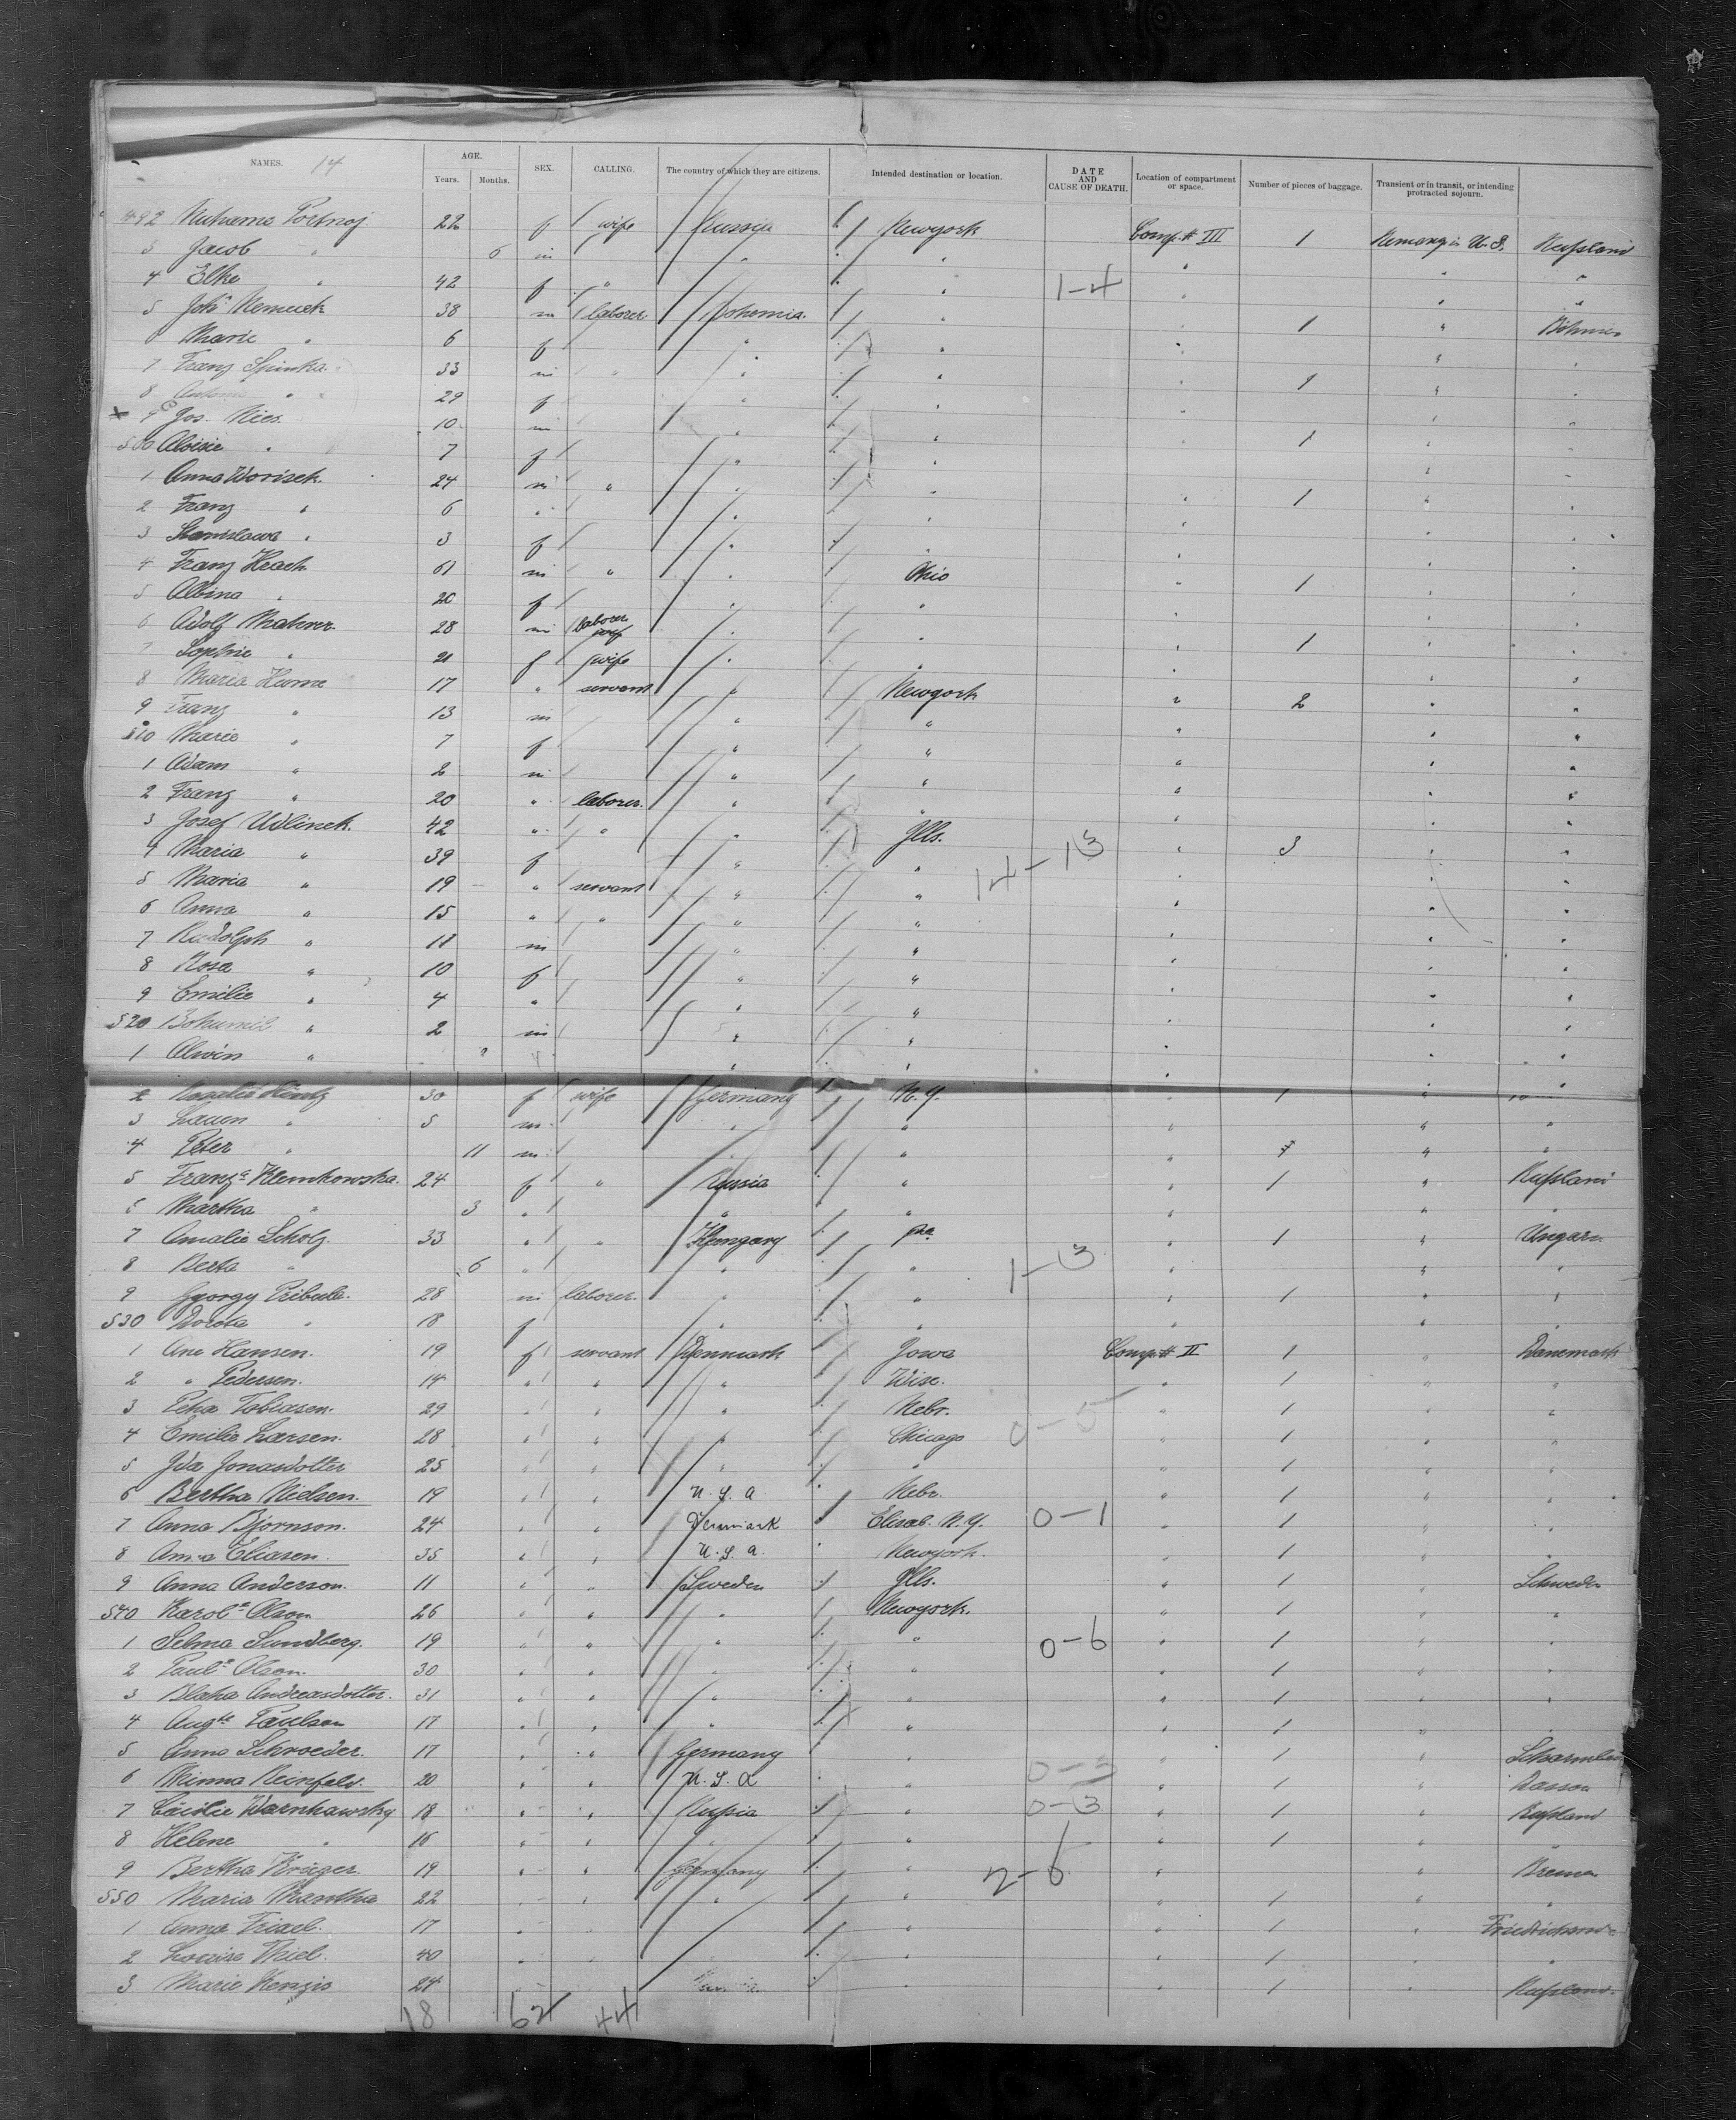 NAMES. 14 AGE. Years. Months. SEX. CALLING. The country of which they are citizens. Intended destination or location. DATE AND CAUSE OF DEATH. Location of compartment or space. Number of pieces of baggage. Transient or in transit, or intending protracted sojourn.
492 22 f wife Russia Newyork Comp. # III 1 U.S. Russland
3 Jacob " 6 m " " " " "
4 Elke " 42 f " " " 1-4 " " "
5 Joh. 38 m laborer Bohemia " " 1 " Böhmen
6 Marie " 6 f " " " "
7 Franz Spinka 33 m " " " " 1 " "
8 " 29 f " " " " "
9 Jos. Nies 10 m " " " 1 " "
500 Aloisie " 7 f " " " "
1 Anna Worisek 24 m " " " " 1 " "
2 Franz " 6 " " " " " "
3 Stanislawa " 3 f " " " " "
4 Franz Hrach 61 m " " Ohio " 1 " "
5 Albina " 20 f " " " " "
6 Adolf Mahrer 28 m laborer " " " 1 " "
7 Sophie " 21 f wife " " " " "
8 Maria 17 " servant " Newyork " 2 " "
9 Franz " 13 m " " " " "
510 Marie " 7 f " " " " "
1 Adam " 2 m " " " " "
2 Franz " 20 " laborer " " " " "
3 Josef Udlinek. 42 " " " Ills. " 3 " "
4 Maria " 39 f " " 14-13 " " "
5 Maria " 19 " servant " " " " "
6 Anna " 15 " " " " " " "
7 Rudolph " 11 m " " " " "
8 Rosa " 10 f " " " " "
9 Emilie " 4 " " " " " "
520 Bohumil " 2 m " " " " "
1 Alwin " " " " " "
2 Rosalie 30 f wife Germany N.Y. " 1 " "
3 " 5 m " " " " "
4 Peter " 11 m " " " " "
5 Franz.a Klemkowska. 24 f " Russia " " 1 " Russland
6 Martha " 3 " " " " " "
7 Amalie Scholz 33 " " Hungary Pa. " 1 " Ungarn
8 Berta " 6 " " " 1-3 " " "
9 Gyorgy Pribula. 28 m laborer. " " " 1 " "
530 Dorota " 18 f " " " " "
1 Ane Hansen. 19 f servant Denmark Jowa Comp. # II 1 " Danemark
2 " Pedersen. 14 " " " Wisc. " 1 " "
3 Tobiasen. 29 " " " Nebr. 0-5 " 1 " "
4 Emilie Larsen. 28 " " " Chicago " 1 " "
5 Ida Jonasdotter 25 " " " " " 1 " "
6 Bertha Nielsen. 19 " " U.S.A Nebr. " 1 " "
7 Anna Bjornson. 24 " " Denmark Elisab. N.Y. 0-1 " 1 " "
8 Anna Eliasen 35 " " U.S.A. Newyork. " 1 " "
9 Anna Anderson. 11 " " Sweden Ills. " 1 " Schweden
540 Karol.a Olson 26 " " " Newyork. " 1 " "
1 Selma Sundberg. 19 " " " " 0-6 " 1 " "
2 Paul.a Olson. 30 " " " " 1 " "
3 Andreasdotter. 31 " " " " " 1 " "
4 Aug.te Paulson 17 " " " " " 1 " "
5 Anna Schroeder. 17 " " Germany " " 1 "
6 Minna Reinfeld. 20 " " U.S.A " 0-3 " 1 "
7 Cäcilie Warnhawsky 18 " " Russia " 0-3 " 1 " Russland
8 Helene " 16 " " " " " 1 " "
9 Bertha Krüger. 19 " " Germany " 2-6 " 1 " Bremen
550 Maria 22 " " " " " 1 " "
1 Anna 17 " " " 1 "
2 Louise Thiel. 40 " " " 1 " "
3 Marie 24 " " " 1 " Russland.
18 62 44